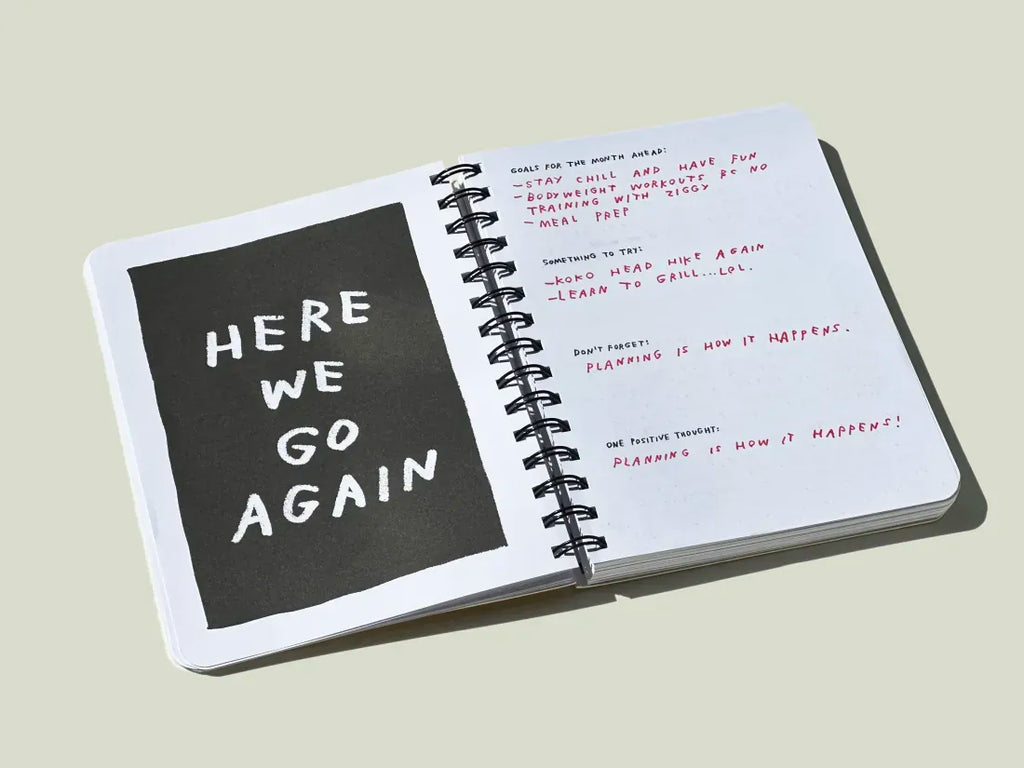 HERE
WE
GO
AGAIN
GOALS FOR THE MONTH AHEAD:
-STAY CHILL AND HAVE FUN
-BODYWEIGHT WORKOUTS BC NO
TRAINING WITH ZIGGY
-MEAL PREP
SOMETHING TO TRY:
-KOKO HEAD HIKE AGAIN
-LEARN TO GRILL...LOL.
DON'T FORGET:
PLANNING IS HOW IT HAPPENS.
ONE POSITIVE THOUGHT:
PLANNING IS HOW IT HAPPENS!